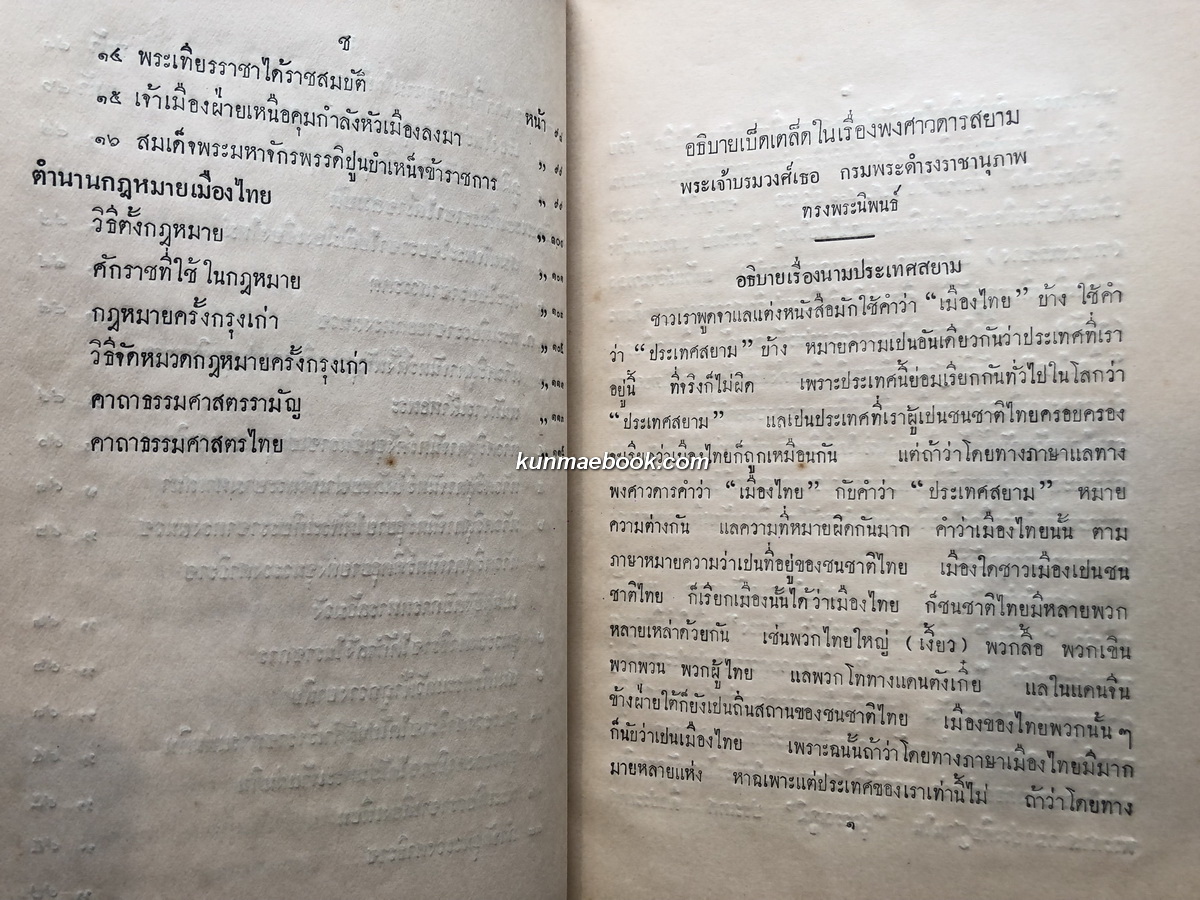 ช
๑๔ พระเทียรราชาได้ราชสมบัติ
หน้า
๑๕ เจ้าเมืองฝ่ายเหนือคุมกำลังหัวเมืองลงมา
๑๖ สมเด็จพระมหาจักรพรรดิปูนบำเหน็จข้าราชการ
ตำนานกฎหมายเมืองไทย
วิธีตั้งกฎหมาย
ศักราชที่ใช้ในกฎหมาย
กฎหมายครั้งกรุงเก่า
วิธีจัดหมวดกฎหมายครั้งกรุงเก่า
คาถาธรรมศาสตรรามัญ
คาถาธรรมศาสตรไทย
อธิบายเบ็ดเตล็ดในเรื่องพงศาวดารสยาม
พระเจ้าบรมวงศ์เธอ กรมพระดำรงราชานุภาพ
ทรงพระนิพนธ์
อธิบายเรื่องนามประเทศสยาม
ชาวเราพูดจาแลแต่งหนังสือมักใช้คำว่า “เมืองไทย” บ้าง ใช้คำ
ว่า “ประเทศสยาม” บ้าง หมายความเปนอันเดียวกันว่าประเทศที่เรา
อยู่นี้ ที่จริงก็ไม่ผิด เพราะประเทศนี้ย่อมเรียกกันทั่วไปในโลกว่า
“ประเทศสยาม” แลเปนประเทศที่เราผู้เปนชนชาติไทยครอบครอง
จะเรียกว่าเมืองไทยก็ถูกเหมือนกัน แต่ถ้าว่าโดยทางภาษาแลทาง
พงศาวดารคำว่า “เมืองไทย” กับคำว่า “ประเทศสยาม” หมาย
ความต่างกัน แลความที่หมายผิดกันมาก คำว่าเมืองไทยนั้น ตาม
ภาษาหมายความว่าเปนที่อยู่ของชนชาติไทย เมืองใดชาวเมืองเปนชน
ชาติไทย ก็เรียกเมืองนั้นได้ว่าเมืองไทย ก็ชนชาติไทยมีหลายพวก
หลายเหล่าด้วยกัน เช่นพวกไทยใหญ่ (เงี้ยว) พวกลื้อ พวกเขิน
พวกพวน พวกผู้ไทย แลพวกโททางแดนตังเกี๋ย แลในแดนจีน
ข้างฝ่ายใต้ก็ยังเปนถิ่นสถานของชนชาติไทย เมืองของไทยพวกนั้น ๆ
ก็นับว่าเปนเมืองไทย เพราะฉนั้นถ้าว่าโดยทางภาษาเมืองไทยมีมาก
มายหลายแห่ง หาฉเพาะแต่ประเทศของเราเท่านี้ไม่ ถ้าว่าโดยทาง
๑
kunmaebook.com